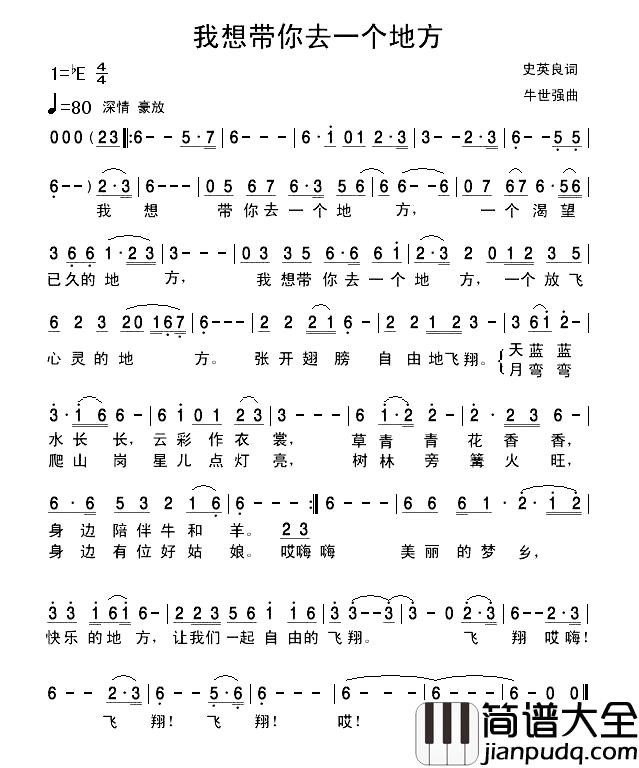 我想带你去一个地方
1=♭E 4/4
史英良词
♩=80 深情 豪放
牛世强曲
000(23|:6--5·7|6---|6·i 012·3|3---|3---2·3|6--55|
6--)2·3|6---|05 67 6·3 56|66--6|07 67 6·56|
我 想 带你去一个地 方, 一个渴望
366 1·23|3---|03 35 6·6 61|2·3--|20 012 35|
已久的地 方, 我想带你去一个地 方,一个放飞
6 2 3 20 167|6---|2 2 2 21 6-|2 21 2 3-|3 61 2-|
心灵的地 方。 张开翅膀 自由地飞翔。{天蓝蓝
月弯弯
3·i 6 6-|6i 01 23|3---|6 i·2 2-|2·2 3 2-|
水长长,云彩作衣裳, 草青青花香香,
爬山岗星儿点灯亮, 树林旁篝火旺,
6·6 53 2 16|6--:|6- 23|6 6 61·|2·i2|
身边陪伴牛和羊。
身边有位好姑娘。哎嗨嗨 美丽的梦乡,
33 i6i 6-|223 56 i 6i|3 3--3|3---|3-0 2·3|6--2·3|
快乐的地方,让我们一起自由的飞翔。 飞 翔哎嗨!
6--2·3|6---|6--5·6|6---|6---|6---|6-00‖
飞 翔! 飞 翔! 哎!
简谱大全
jianpudq.com